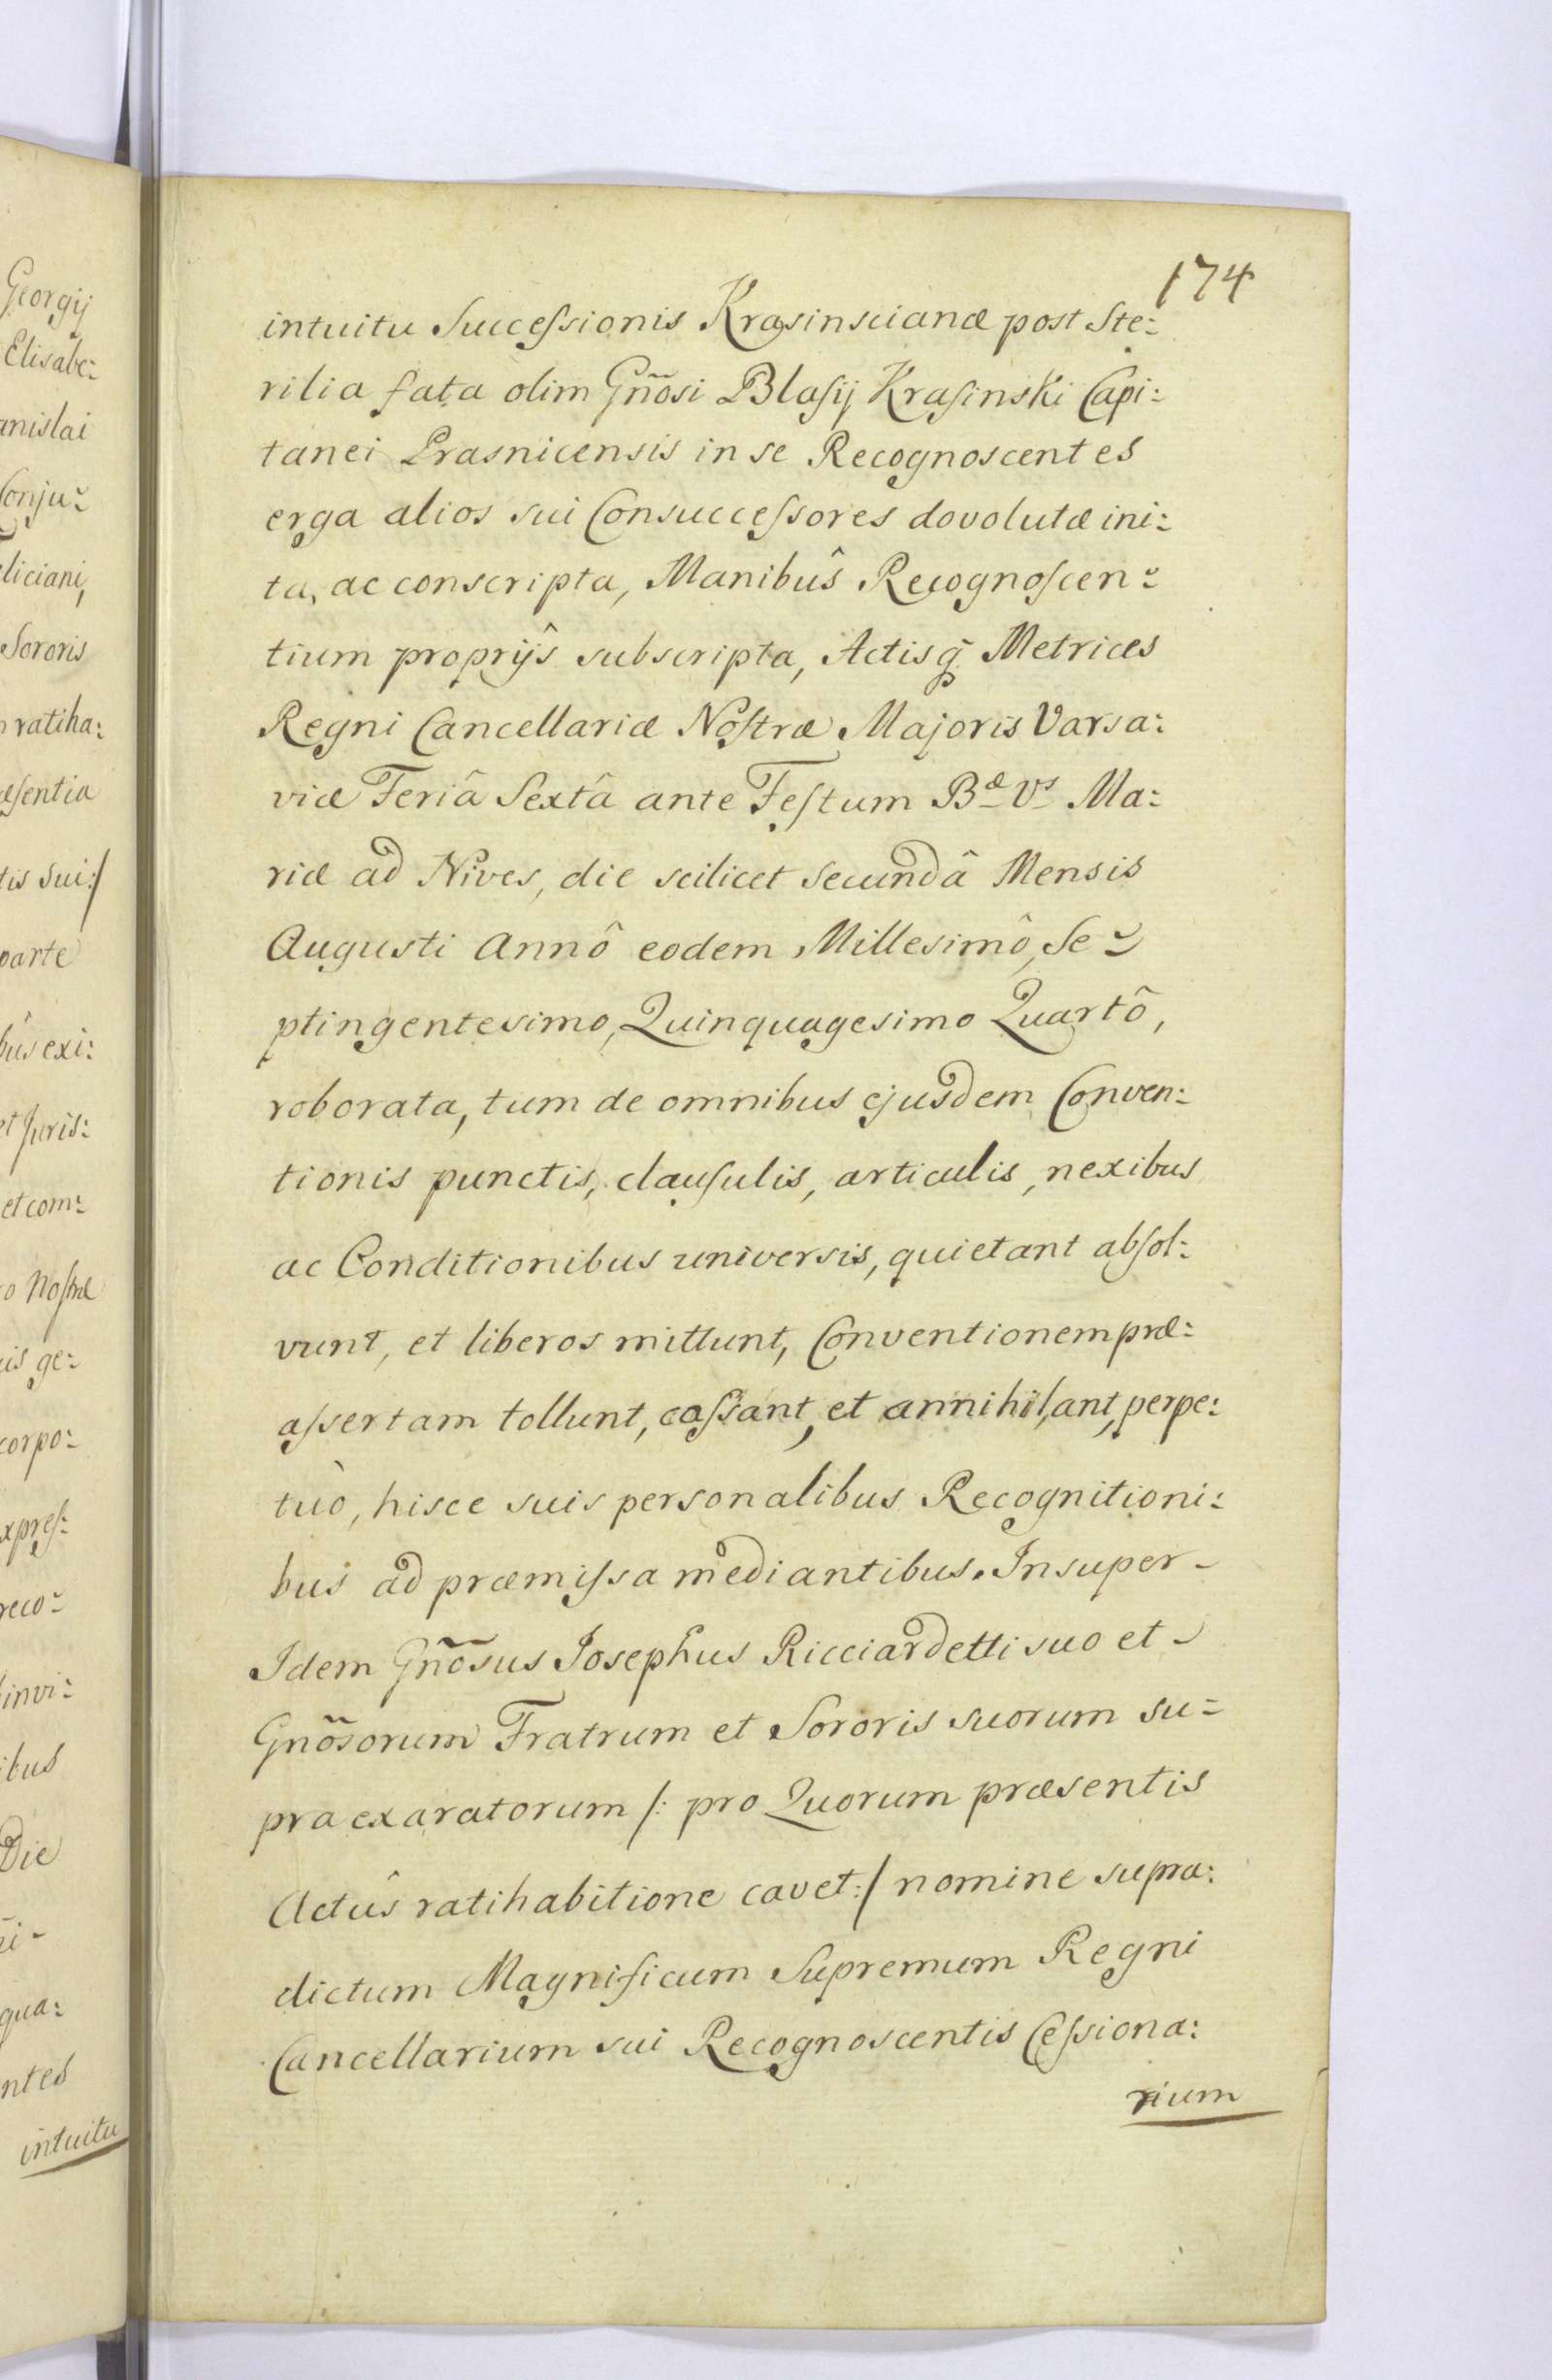 174
intuitu Succeſsionis Krasinscianæ post Ste:
rilia fata olim Gñosi Blaſij Kraſinski Capi:
tanei Prasnicensis in se Recognoscentes
erga alios sui Consucceſsores dovolutæ ini:
ta, ac conscripta, Manibûs Recognoſcen:
tium proprijs subscripta, Actisq̃ Metrices
Regni Cancellariæ Noſtræ Majoris Varsa:
viæ Feriâ Sextâ ante Feſtum Bæ Vs Ma:
riæ ad Nives, die scilicet secundâ Mensis
Augusti Annô eodem Millesimô, Se:
ptingentesimo, Quinquagesimo Quartô,
roborata, tum de omnibus ejusdem Conven:
tionis punctis, clauſulis, articulis, nexibus
ac Conditionibus universis, quietant abſol:
vunt, et liberos mittunt, Conventionem præ:
aſsertam tollunt, caſsant, et annihilant, perpe:
tuò, hisce suis personalibus Recognitioni:
bus ad præmiſsa mediantibus. Insuper
Idem Gñosus Josephus Ricciardetti suo et
Gñosorum Fratrum et Sororis suorum su:
pra exaratorum /: pro Quorum præsentis
Actûs ratihabitione cavet :/ nomine supra:
dictum Magnificum Supremum Regni
Cancellarium sui Recognoscentis Ceſsiona:
rium
Georgij
Elisabe:
anislai
Conju:
eliciani,
Sororis
ratiha:
æſentia
tis sui :/
parte
bûs exi:
et Juris:
et com:
o Noſtræ
is ge:
corpo:
xpreſ:
reco:
invi:
ibus
Die
qua:
ntes
intuitu